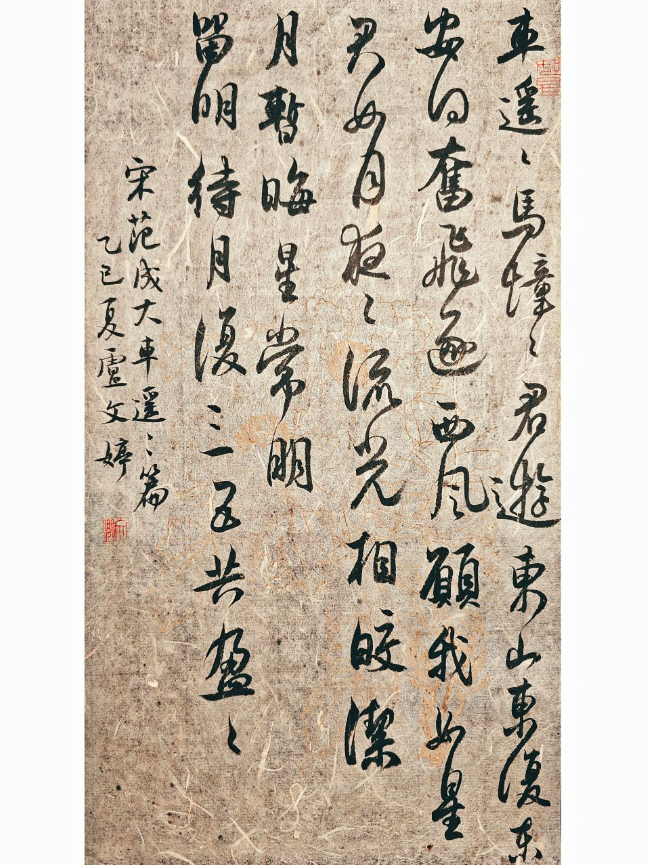 車遥〻馬憧〻君遊東山東復东
安得奮飛逐西风願我如星
君如月夜〻流光相皎潔
月暫晦星常明
留明待月復三五共盈〻
宋范成大車遥〻篇
乙巳夏盧文婷